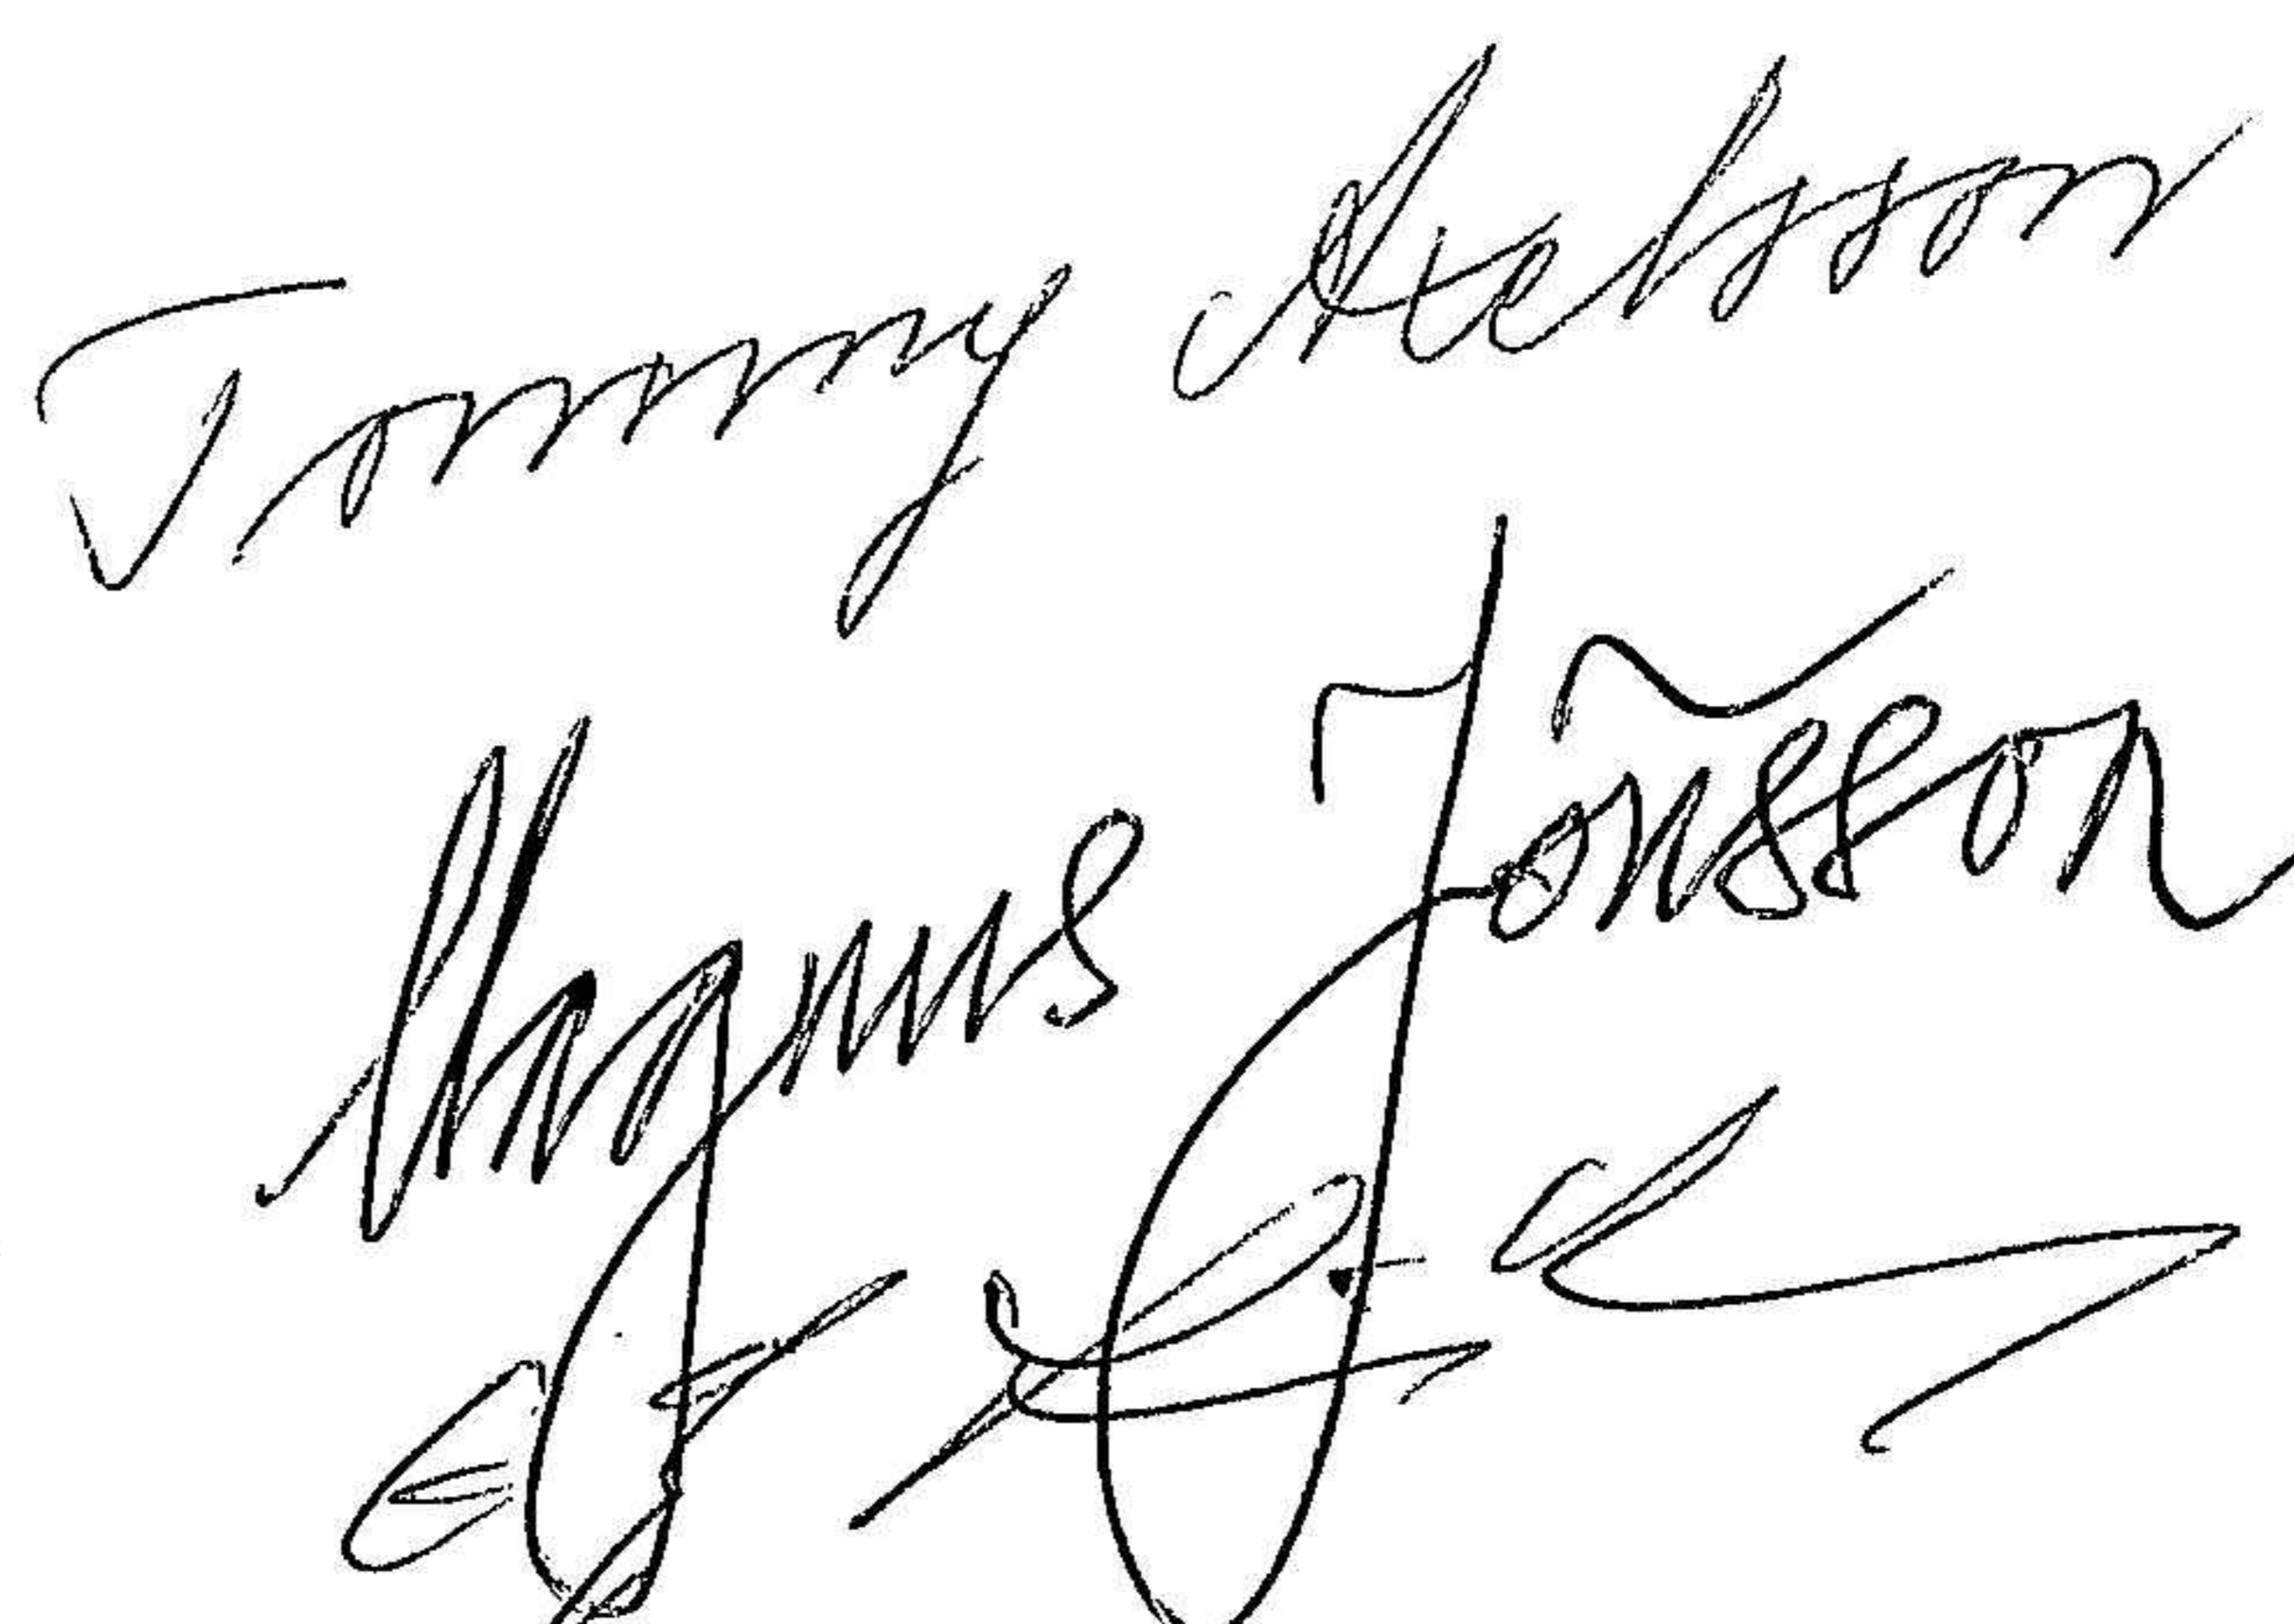 Tommy Axelsson
Magnus Jonsson